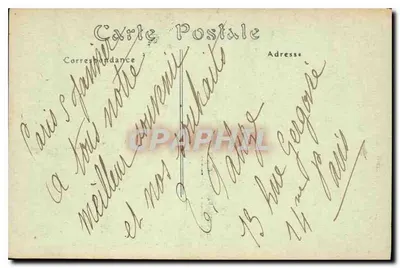 Carte Postale
Correspondance
Adresse
Paris 5 Janvier
a tous notre
meilleur souvenir
et nos souhaits
13 Rue
14 me
Paris
CPAPHIL